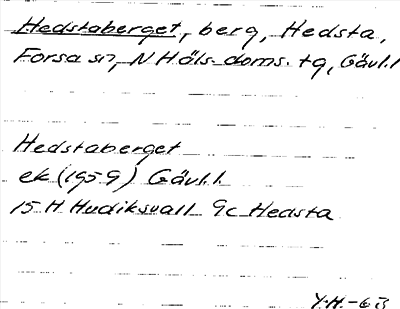 Hedstaberget, berg, Hedsta,
Forsa sn, N Häls. doms. tg, Gävl.l
Hedstaberget
ek (1959) Gävl.l.
15 H Hudiksvall 9c Hedsta
Y.H.-63